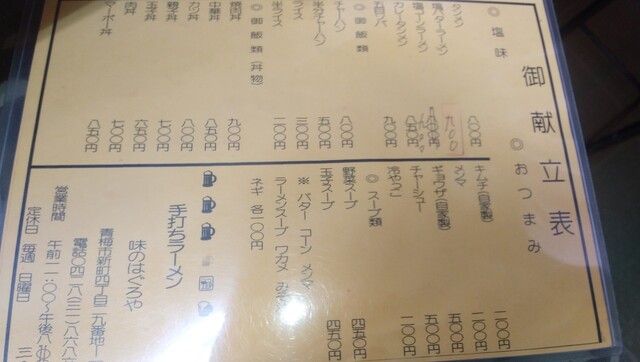 御献立表
◎塩味
タンメン 八〇〇円
塩バターラーメン 九〇〇
塩コーンラーメン
カレータンメン
五目ソバ 九〇〇円
◎御飯類
チャーハン 八〇〇円
半チャーハン 五〇〇円
ライス 三〇〇円
半ライス 二〇〇円
◎御飯類(丼物)
九〇〇円
中華丼 八五〇円
カツ丼 八〇〇円
親子丼 七〇〇円
玉子丼 六五〇円
肉丼 七〇〇円
マーボー丼 八五〇円
◎おつまみ
キムチ(自家製) 二〇〇円
メンマ 二〇〇円
ギョウザ(自家製) 五〇〇円
チャーシュー 五〇〇円
冷やっこ 二〇〇円
◎スープ類
野菜スープ 四五〇円
玉子スープ 四五〇円
※バター コーン メンマ
ラーメンスープ ワカメ
ネギ 各一〇〇円
手打ちラーメン
味のはぐろや
青梅市新町四丁目二九番地
電話〇四二八(三一)
営業時間 午前一一:〇〇~午後八
定休日 毎週 日曜日